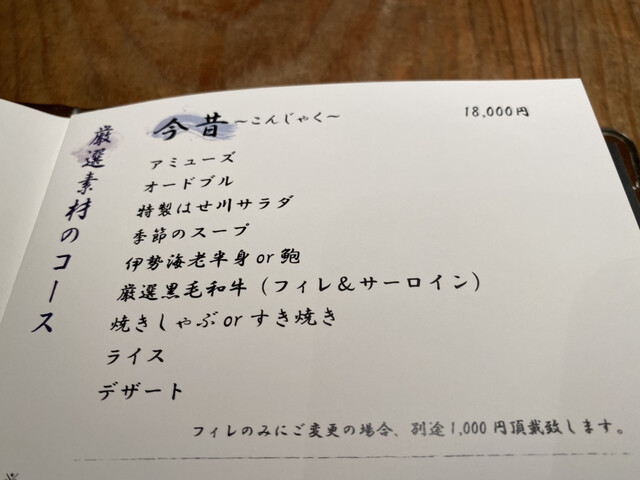 厳選素材のコース
今昔 ~こんじゃく~ 18,000円
アミューズ
オードブル
特製はせ川サラダ
季節のスープ
伊勢海老半身or鮑
厳選黒毛和牛(フィレ&サーロイン)
焼きしゃぶorすき焼き
ライス
デザート
フィレのみにご変更の場合、別途1,000円頂戴致します。
※